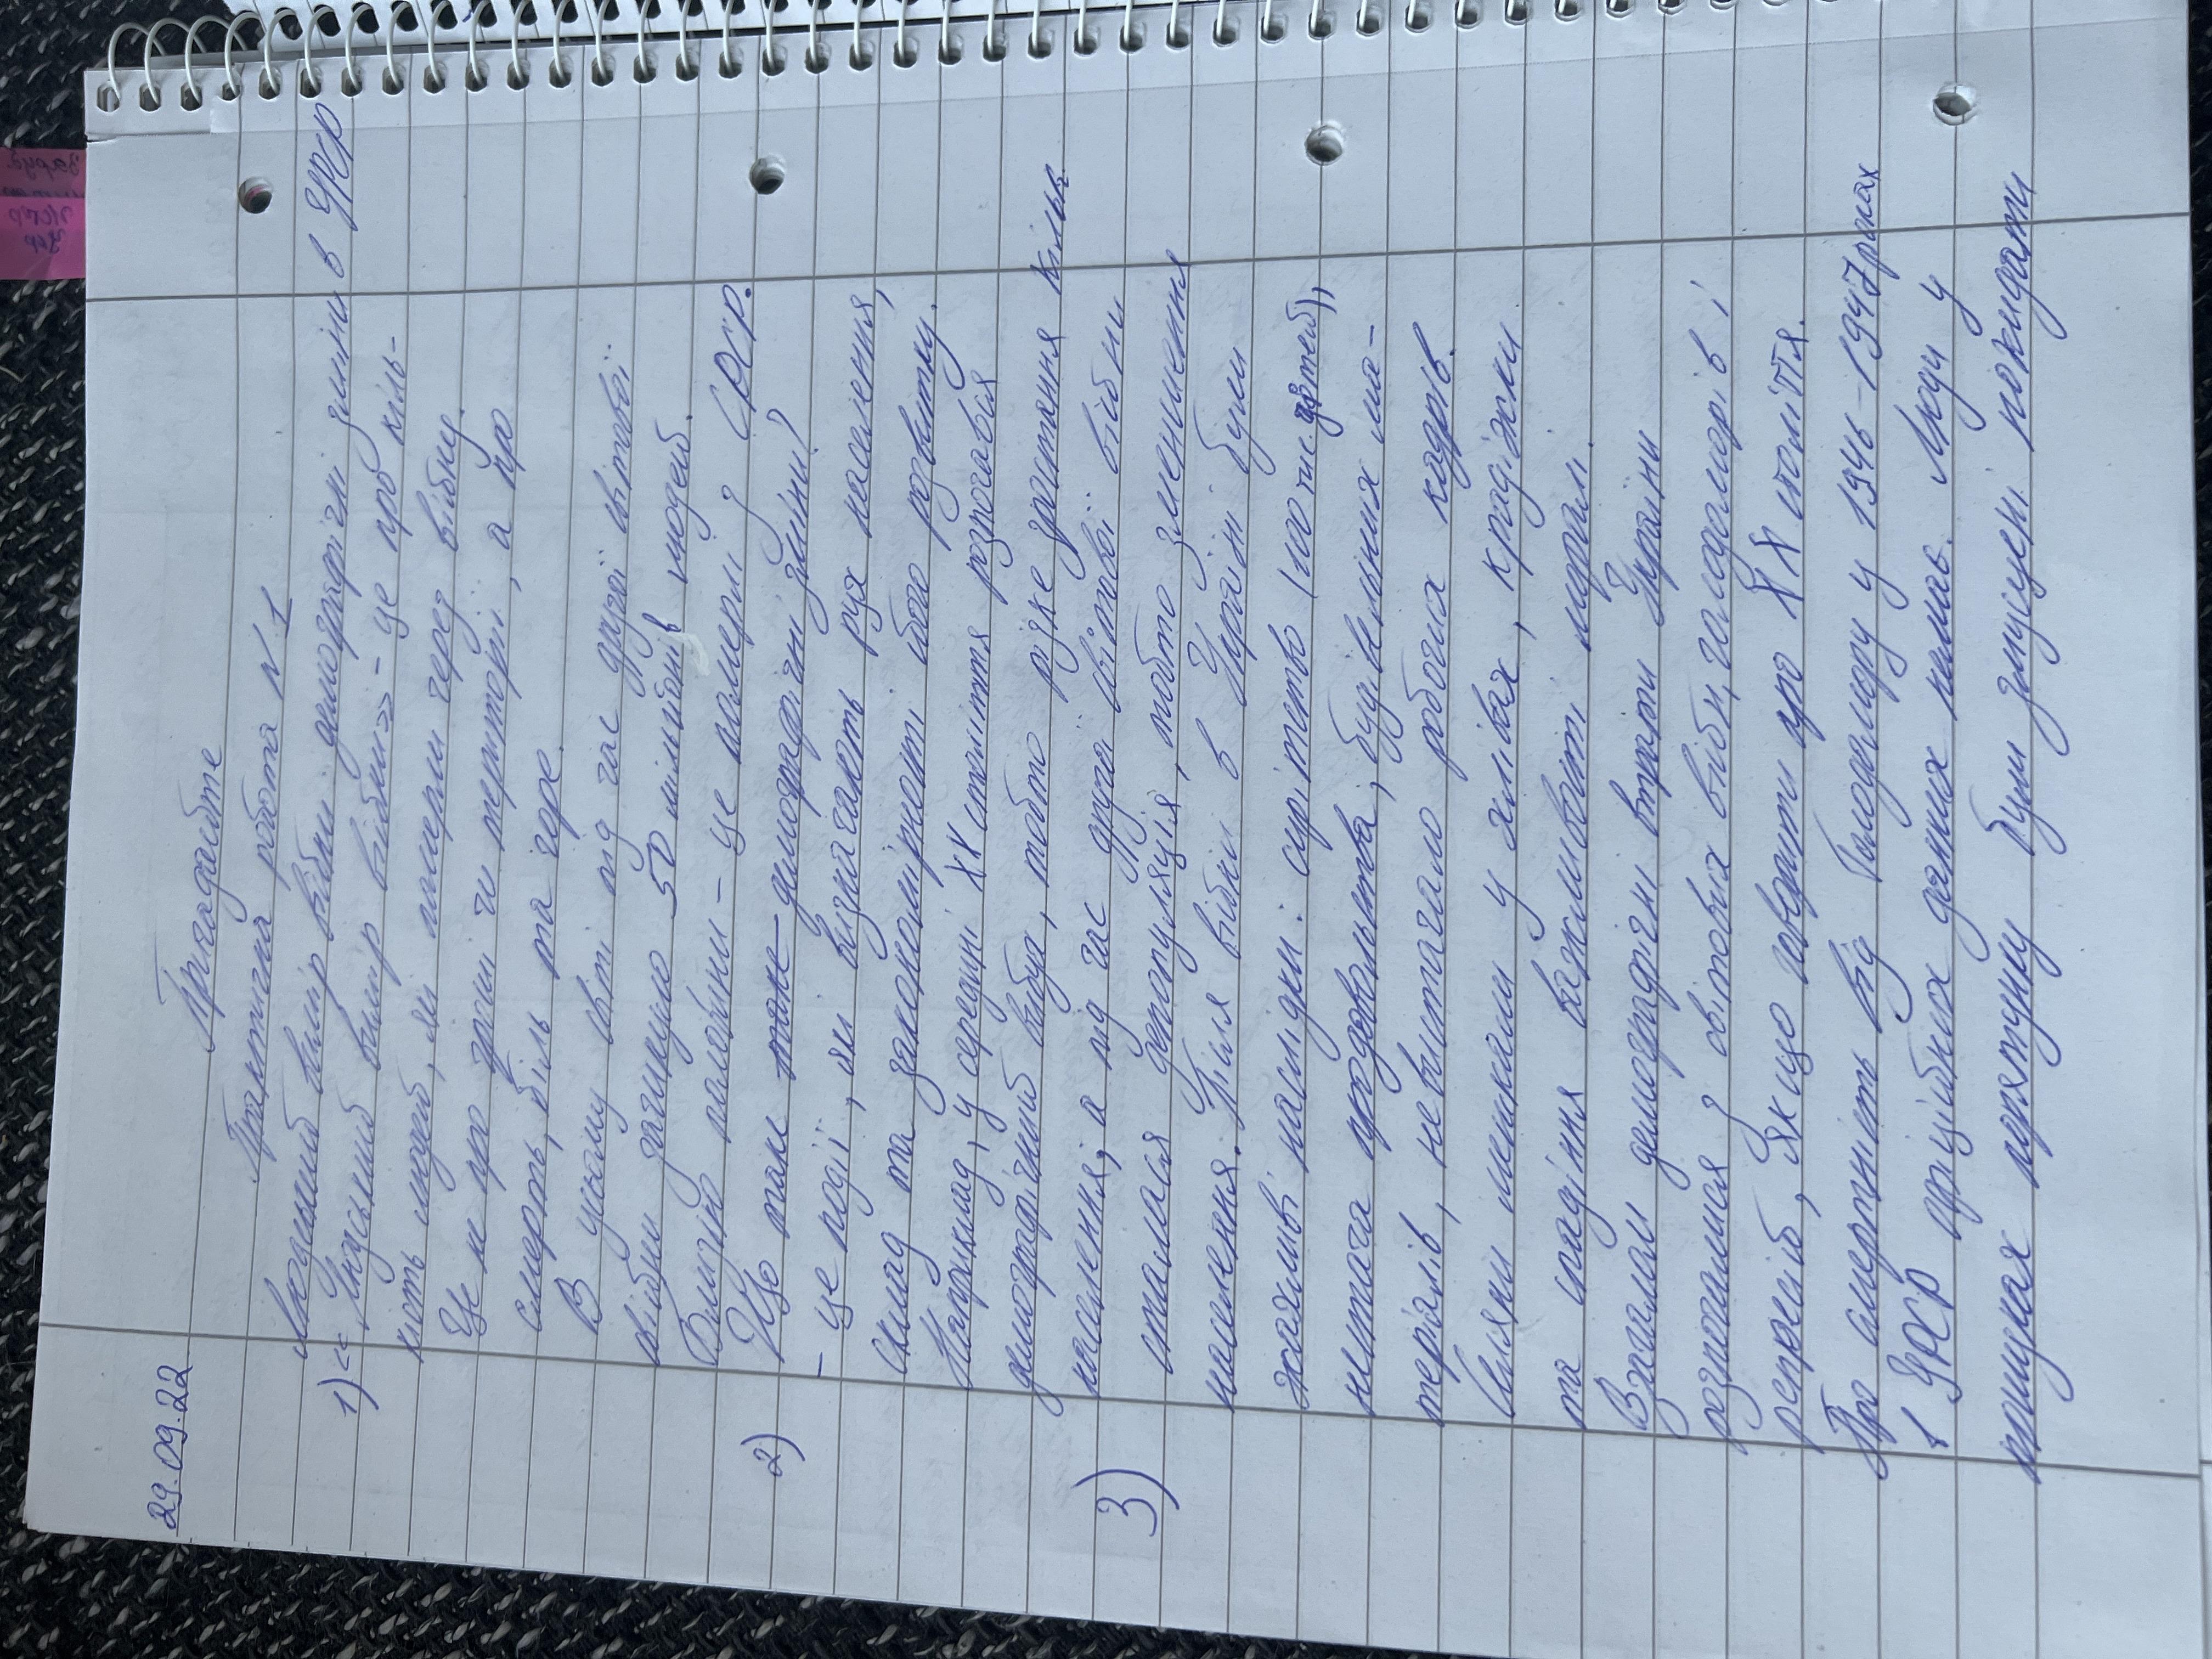 29.09.22
Тригадайте
Практична робота N 1
Людський вимір війни. демографічні зміни в УРСР
1) << Людський вимір війни>> - це про кіль-
кість людей, які померли через війну.
Це не про гроші чи території, а про
смерть, біль та горе.
В усьому світі під час другої світової
війни загинуло 50 мільйонів людей.
Більша половина - це померлі з СРСР.
2) Що таке демографічні зміни?
- це події, які визначають рух населення,
склад та закономірності його розвитку.
Наприклад, у середині ХХ століття розпочався
демографічний вибух, тобто різке зростання кільк.
населення, а під час другої світової війни
сталася депопуляція, тобто зменшення
3) населення. Після війни в Україні були
жахливі наслідки: сирітство (100 тис. дітей),
нестача продовольства, будівельних ма-
теріалів, невистачало робочих кадрів.
Селяни мешкали у хлівах, крадіжки
та спадіння важливості моралі.
Взагалі демографічні втрати України
розпочалися з світових війн, голодоморів і
репресій, якщо говорити про ХХ століття.
Про смертність від Голодомору у 1946-1947 роках
в УРСР офіційних даних немає. Люди у
пошуках порятунку були змушені покидати